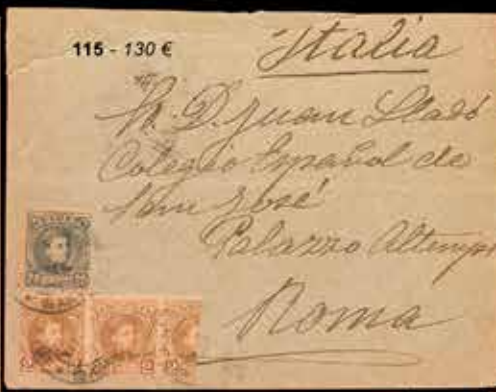 115 - 130 €
Italia
R. D. Juan Lladó
Colegio Español de
San José
Palazzo Altemps
Roma